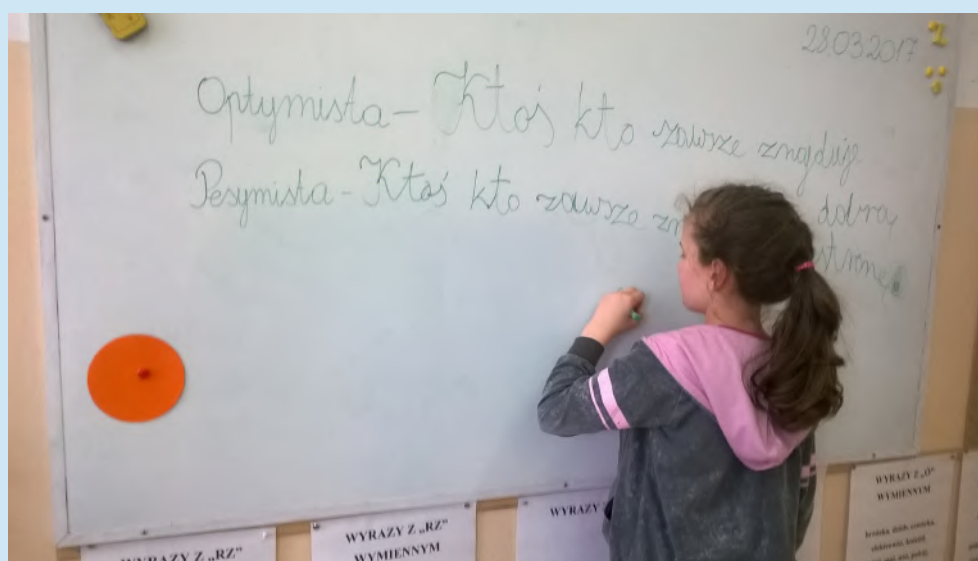 28.03.2017
Optymista - Ktoś kto zawsze znajduje
dobrą
stronę
Pesymista - Ktoś kto zawsze zn
WYRAZY Z „RZ”
WYRAZY Z „RZ”
WYMIENNYM
WYRAZY
WYRAZY Z „Ó”
WYMIENNYM